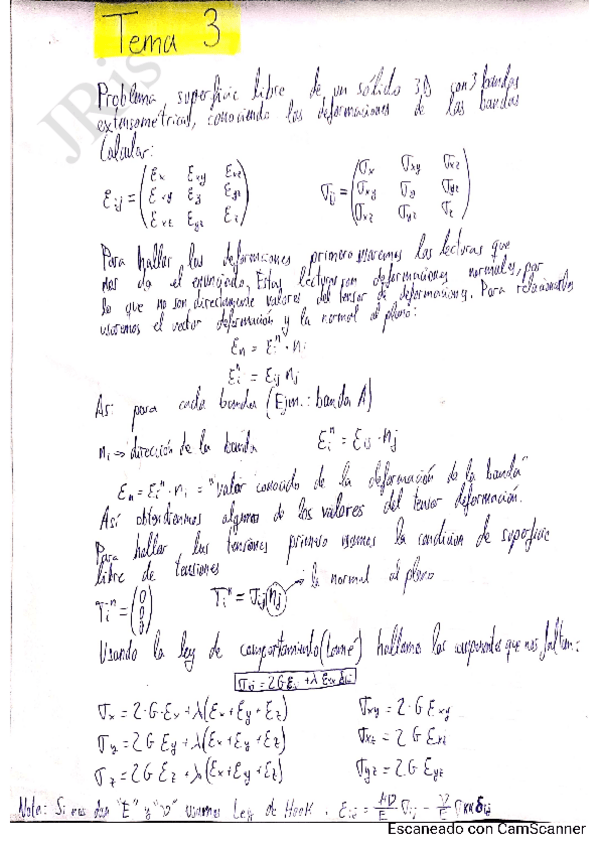 Tema 3
JRis
Problema superficie libre de un sólido 3D con 3 bandas
extensométricas, conociendo las deformaciones de las bandas
Calcular:
εij = (εx εxy εxz
εxy εy εyz
εxz εyz εz)
σij = (σx σxy σxz
σxy σy σyz
σxz σyz σz)
Para hallar las deformaciones primero usaremos las lecturas que
nos da el enunciado. Estas lecturas son deformaciones normales, por
lo que no son directamente valores del tensor de deformaciones. Para relacionarlos
usaremos el vector deformación y la normal al plano:
εn = εi^n · ni
εi^n = εij nj
Así para cada banda (Ejm.: banda A)
ni → dirección de la banda εi^n = εij · nj
εn = εi^n · ni = "valor conocido de la deformación de la banda"
Así obtendríamos algunos de los valores del tensor deformación.
Para hallar las tensiones primero usamos la condición de superficie
libre de tensiones
Ti^n = (0
0
0)
Ti^n = σij nj → la normal al plano
Usando la ley de comportamiento (Lamé) hallamos las componentes que nos faltan:
σij = 2Gεij + λ εkk δij
σx = 2·G·εx + λ(εx + εy + εz) σxy = 2·G εxy
σy = 2G εy + λ(εx + εy + εz) σxz = 2G εxz
σz = 2G εz + λ(εx + εy + εz) σyz = 2·G εyz
Nota: Si nos dan "E" y "ν" usamos Ley de Hook. εij = /E σij - ν/E σkk δij
Escaneado con CamScanner